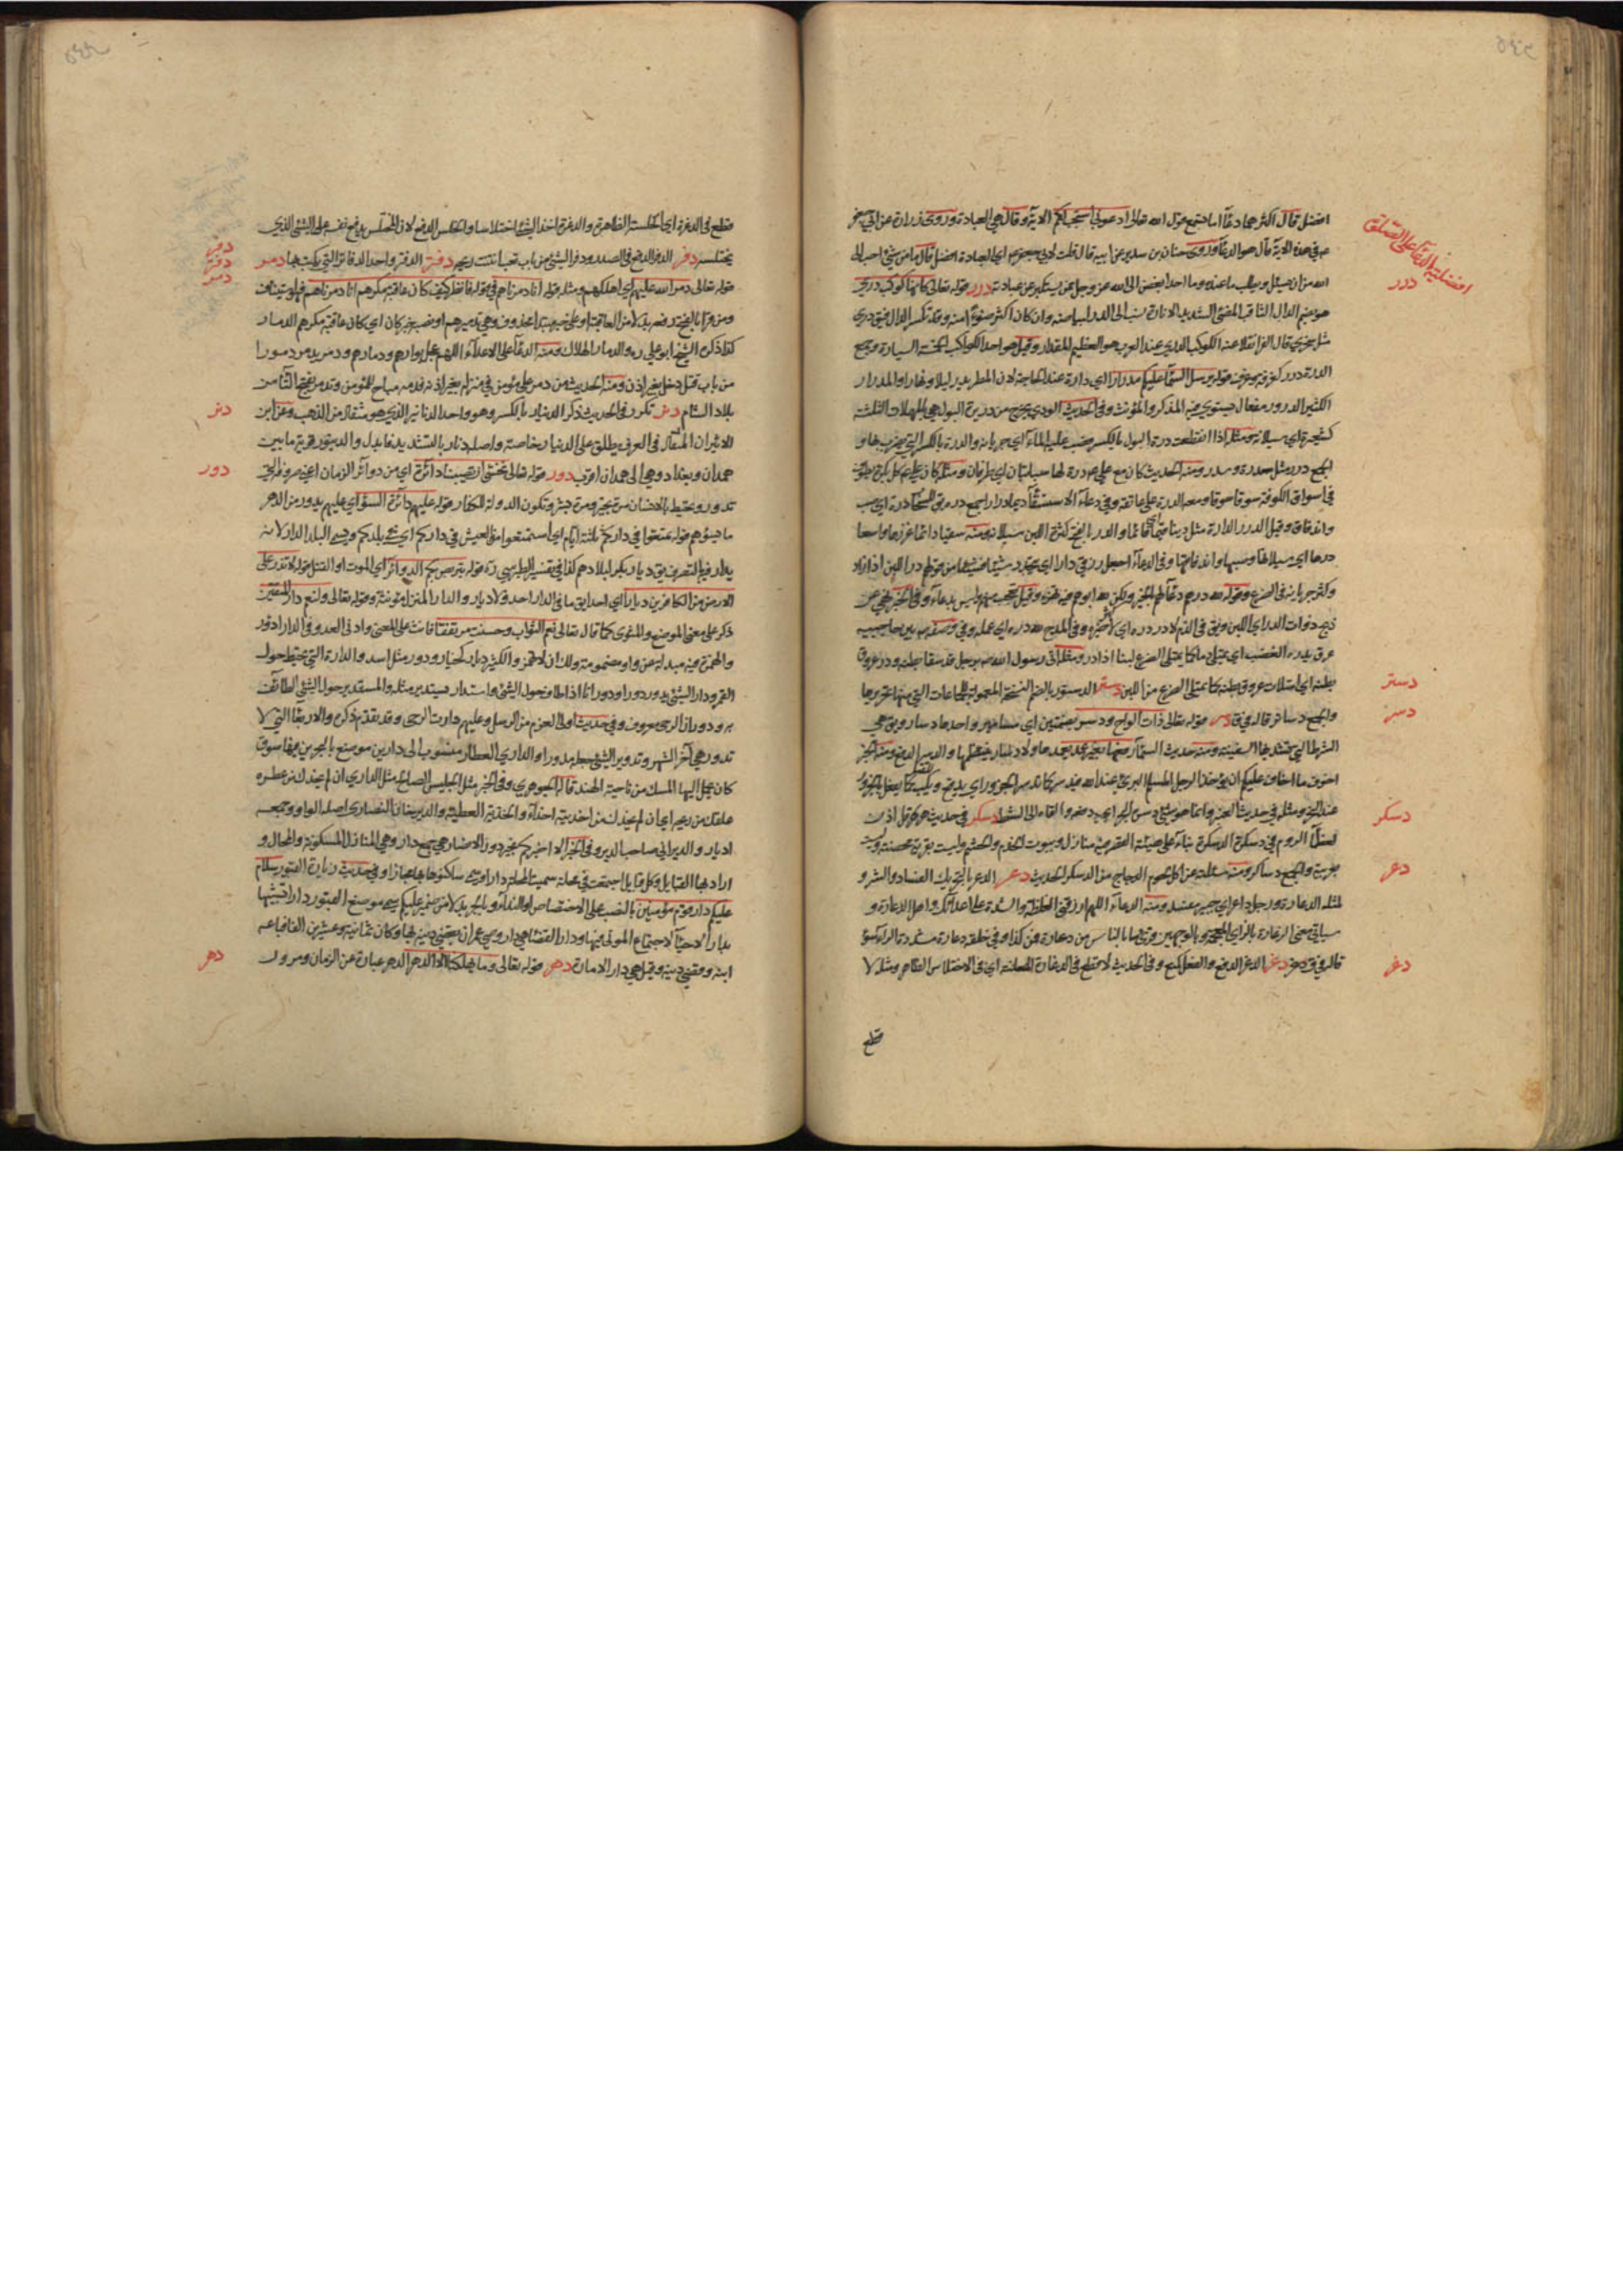 افضل قال اكثرهما دعآء اما تسمع قول الله تعالى ادعوني استجب لكم الاية وقال هي العبادة وروى زرارة عن ابي جعفر
افضلية الدعآء على الصلوة
عم في هذه الاية قال هو الدعآء وروى حنان بن سدير عن ابيه قال قلت لابي جعفر عم اي العبادة افضل قال ما من شيء احب الى
الله من ان يسئل ويطلب ما عنده وما احد ابغض الى الله عز وجل ممن يستكبر عن عبادته درر قوله تعالى كانها كوكب دري
درر
هو بضم الدال الثاقب المضيء الشديد الانارة نسب الى الدر لبياضه وان كان اكثر ضوءا منه وقد تكسر الدال فيق دري
مثل سخري قال الفرا نقلا عنه الكوكب الدري عند العرب هو العظيم المقدار وقيل هو احد الكواكب الخمسة السيارة وجمع
الدرة درر كغرفة وغرف قوله يرسل السمآء عليكم مدرارا اي دارة عند الحاجة لان المطر يدر ليلا ونهارا والمدرار
الكثير الدرور مفعال يستوي فيه المذكر والمؤنث وفي الحديث الودي يخرج من دريرة البول هي بالمهملات الثلثة
كسفينة اي سيلانه ومثله اذا انقطعت درة البول بالكسر فصب عليه المآء اي جريانه والدرة بالكسر التي يضرب بها و
الجمع درر مثل سدرة وسدر ومنه الحديث كان مع علي عم درة لها سبابتان اي طرفان ومثله كان علي عم كل بكرة يطوف
في اسواق الكوفة سوقا سوقا ومعه الدرة على عاتقه وفي دعآء الاستسقآء ديما درارا جمع درة يق للسحاب درة اي صب
واندفاق وقيل الدرر الدارة مثل دينا قيما اي قائما والدر بالفتح كثرة اللبن وسيلانه ومنه سقيا دائما غزرها واسعا
درها اي سيلانها وصبها واندفاقها وفي الدعآء اجعل رزقي دارا اي يتجدد شيئا فشيئا من قولهم در اللبن اذا زاد
وكثر جريانه في الضرع وقوله لله درهم دعآء لهم بالخير
ذبح ذوات الدر اي اللبن ويق في الذم لا در دره اي لا كثر خيره وفي المدح لله دره اي عمله وفي وصفه ص بين حاجبيه
عرق يدره الغضب اي يمتلئ دما كما يمتلئ الضرع لبنا اذا در
بطنه اي امتلات عروق بطنه كما يمتلئ الضرع من اللبن دستر الدستور بالضم النسخة المعمولة للجماعات التي منها تحريرها
دستر
والجمع دساتر قاله في ق دسر قوله تعالى ذات الواح ودسر بضمتين اي مسامير واحدها دسار ويق هي
دسر
الشرط التي تشد بها السفينة ومنه حديث السمآء رفعها بغير عمد يدعمها ولا دسار ينتظمها والدسر الدفع ومنه الخبر
اخوف ما اخاف عليكم ان يؤخذ الرجل المسلم البريء عند الله فيدسر كما تدسر الجزور اي يدفع ويكب كما يفعل بالجزور
عند النحر ومثله في حديث العنبر وانما هو شيء دسره البحر اي دفعه والقاه الى الشط دسكر في حديث هرقل اذن
دسكر
لعظمآء الروم في دسكرة الدسكرة بنآء على هيئة القصر فيه منازل وبيوت للخدم والحشم وليست بعربية محضة
والجمع دساكر ومنه سئلته عن اكل لحوم الدجاج من الدساكر الحديث دعر الدعر بالتحريك الفساد والشر و
دعر
مثله الدعارة ورجل داعر اي خبيث مفسد ومنه الدعآء اللهم ارزقني الغلظة والشدة على اعدائك واهل الدعارة و
سياتي معنى الزعارة بالزاي المعجمة
قاله في ق دغر الدغر الدفع والفعل كمنع وفي الحديث لا قطع في الدغارة المعلنة اي في الاختلاس الظاهر ومثله لا
دغر
قطع
قطع في الدغرة اي الخلسة الظاهرة والدغرة اخذ الشيء اختلاسا واصل الدغر الدفع لان المختلس يدفع نفسه على الشيء الذي
يختلسه دفر الدفر الدفع في الصدر ودفر الشيء من باب تعب انتنت ريحه دفتر الدفتر واحد الدفاتر التي يكتب بها دمر
دفر
دفتر
دمر
قوله تعالى دمر الله عليهم اي اهلكهم ومثله قوله انا دمرناهم في قوله فانظر كيف كان عاقبة مكرهم انا دمرناهم فيمن قرا بالكسر
ومن قرا بالفتح رفعه بدلا من العاقبة او على خبر مبتدا محذوف وهي تدميرهم او نصبه خبر كان اي كان عاقبة مكرهم الدمار
كذا ذكره الشيخ ابو علي ره والدمار الهلاك ومنه الدعآء على الاعدآء اللهم عجل بوارهم ودمارهم ودمر يدمر دمورا
من باب قتل دخل بغير اذن ومنه الحديث من دمر على مؤمن في منزله بغير اذنه فدمه مباح للمؤمن وتدمر بفتح التآء من
بلاد الشام دنر تكرر في الحديث ذكر الدينار بالكسر وهو واحد الدنانير الذي هو مثقال من الذهب وعن ابن
دنر
الاثير ان المثقال في العرف يطلق على الدينار خاصة واصله دنار بالتشديد فابدل والدينور قرية ما بين
همدان وبغداد وهي الى همدان اقرب دور قوله تعالى نخشى ان تصيبنا دائرة اي من دوائر الزمان اعني صروفه التي
دور
تدور وتحيط بالانسان مرة بخير ومرة بشر وتكون الدولة للكفار قوله عليهم دآئرة السوء اي عليهم يدور من الدهر
ما يسوؤهم قوله تمتعوا في داركم ثلثة ايام اي استمتعوا بالعيش في داركم اي في بلدكم ويسمى البلد الدار لانه
يدار فيه بالتصرف يق ديار بكر لبلادهم كذا في تفسير الطبرسي ره قوله يتربص بكم الدوائر اي الموت او القتل قوله لا تذر على
الارض من الكافرين ديارا اي احدا يق ما في الدار احد ولا ديار والدار المنزل مؤنثة وقوله تعالى ولنعم دار المتقين
ذكر على معنى الموضع والمثوى كما قال تعالى نعم الثواب وحسنت مرتفقا فانث على المعنى وادنى العدد في الدار ادؤر
والهمزة فيه مبدلة من واو مضمومة ولك ان لا تهمز والكثير ديار كخيار ودور مثل اسد والدارة التي تحيط حول
القمر ودار الشيء يدور دورا ودورانا اذا طاف حول الشيء واستدار يستدير مثله والمستدير حول الشيء الطائف
به ودوران الرحى معروف وفي حديث اولي العزم من الرسل وعليهم دارت الرحى وقد تقدم ذكره والاربعآء التي لا
تدور هي آخر الشهر وتدوير الشيء جعله مدورا والداري العطار منسوب الى دارين موضع بالبحرين فيها سوق
كان يحمل اليها المسك من ناحية الهند قاله الجوهري وفي الخبر مثل الجليس الصالح مثل الداري ان لم يحذك من عطره
علقك من ريحه اي ان لم يعطك من احذيته احذآء والحذية العطية والدير خان النصارى اصله الواو وجمعه
اديار والديراني صاحب الدير وفي الخبر الا اخبركم بخير دور الانصار هي جمع دار وهي المنازل المسكونة والمحال و
اراد بها القبايل وكل قبيلة اجتمعت في محلة سميت المحلة دارا وسمي ساكنوها بها مجازا وفي حديث زيارة القبور سلام
عليكم دار قوم مؤمنين بالنصب على الاختصاص او الندآء وبالجر بدلا من ضمير عليكم سمي موضع القبور دارا تشبيها
بدار الاحيآء لاجتماع الموتى فيها ودار القضآء هي دار
ابنه وقضى دينه وقيل هي دار الامارة دهر قوله تعالى وما يهلكنا الا الدهر الدهر عبارة عن الزمان ومرور
دهر